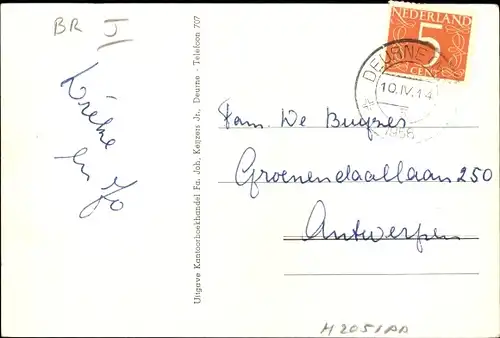 BR J
NEDERLAND
5
CENT
DEURNE
10.IV.14
1958
en Jo
Uitgave Kantoorboekhandel Fa. Joh. Keijzers Jz., Deurne - Telefoon 707
Fam. De Buyzer
Groenendaallaan 250
Antwerpen
M2051AA